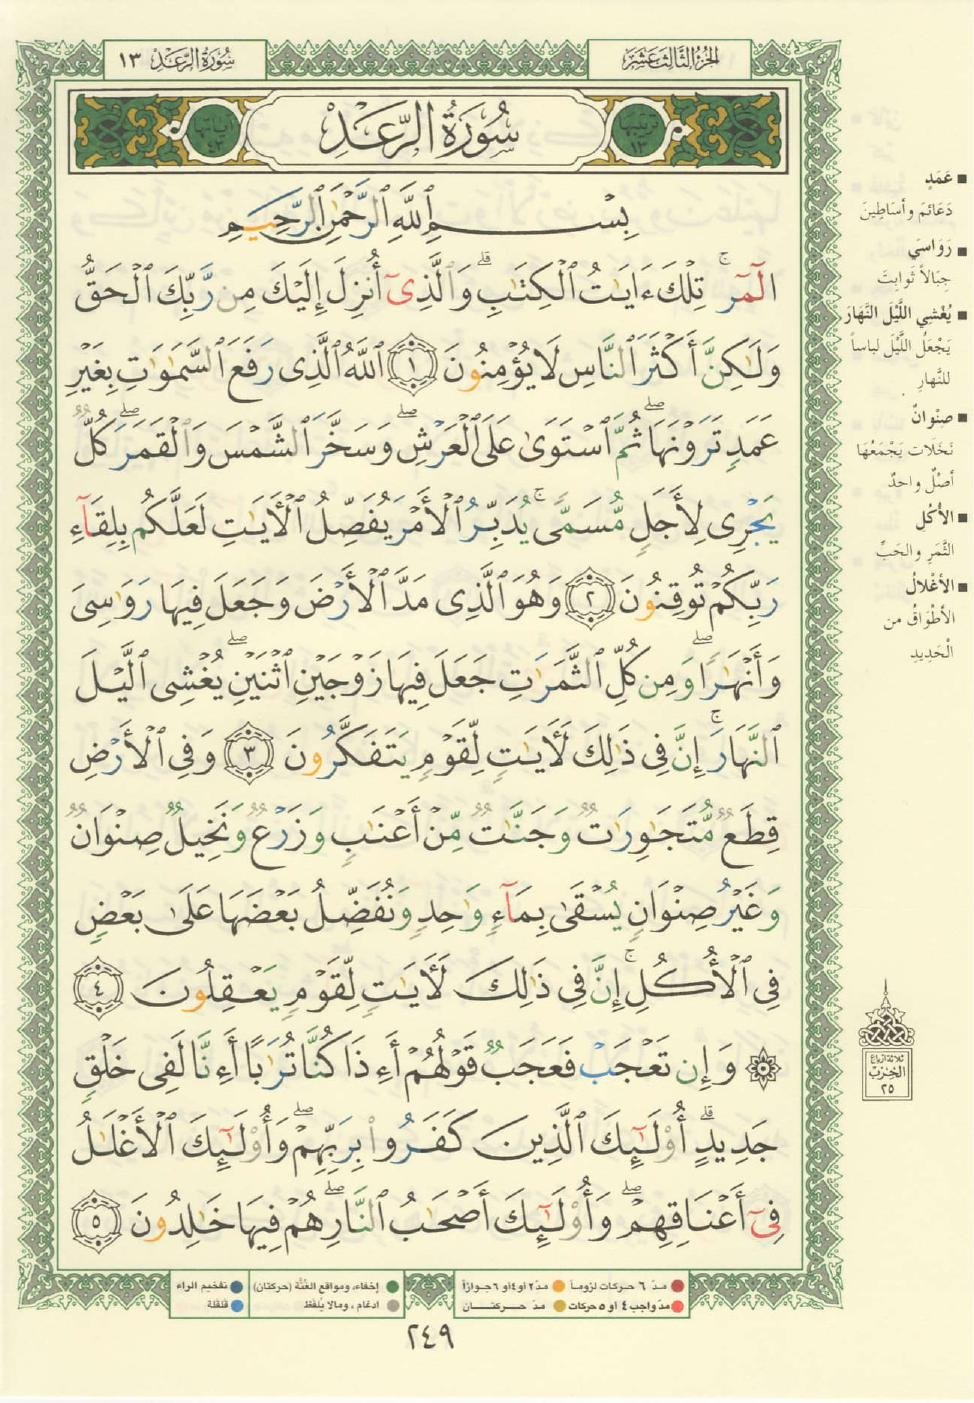 الجزء الثالث عشر
سورة الرعد ١٣
ترتيبها ١٣
سُورَةُ الرَّعْدِ
آياتها ٤٣
بِسْمِ ٱللَّهِ ٱلرَّحْمَٰنِ ٱلرَّحِيمِ
الٓمٓر ۚ تِلْكَ ءَايَٰتُ ٱلْكِتَٰبِ ۗ وَٱلَّذِىٓ أُنزِلَ إِلَيْكَ مِن رَّبِّكَ ٱلْحَقُّ
وَلَٰكِنَّ أَكْثَرَ ٱلنَّاسِ لَا يُؤْمِنُونَ ١ ٱللَّهُ ٱلَّذِى رَفَعَ ٱلسَّمَٰوَٰتِ بِغَيْرِ
عَمَدٍ تَرَوْنَهَا ۖ ثُمَّ ٱسْتَوَىٰ عَلَى ٱلْعَرْشِ ۖ وَسَخَّرَ ٱلشَّمْسَ وَٱلْقَمَرَ ۖ كُلٌّ
يَجْرِى لِأَجَلٍ مُّسَمًّى ۚ يُدَبِّرُ ٱلْأَمْرَ يُفَصِّلُ ٱلْءَايَٰتِ لَعَلَّكُم بِلِقَآءِ
رَبِّكُمْ تُوقِنُونَ ٢ وَهُوَ ٱلَّذِى مَدَّ ٱلْأَرْضَ وَجَعَلَ فِيهَا رَوَٰسِىَ
وَأَنْهَٰرًا ۖ وَمِن كُلِّ ٱلثَّمَرَٰتِ جَعَلَ فِيهَا زَوْجَيْنِ ٱثْنَيْنِ ۖ يُغْشِى ٱلَّيْلَ
ٱلنَّهَارَ ۚ إِنَّ فِى ذَٰلِكَ لَءَايَٰتٍ لِّقَوْمٍ يَتَفَكَّرُونَ ٣ وَفِى ٱلْأَرْضِ
قِطَعٌ مُّتَجَٰوِرَٰتٌ وَجَنَّٰتٌ مِّنْ أَعْنَٰبٍ وَزَرْعٌ وَنَخِيلٌ صِنْوَانٌ
وَغَيْرُ صِنْوَانٍ يُسْقَىٰ بِمَآءٍ وَٰحِدٍ وَنُفَضِّلُ بَعْضَهَا عَلَىٰ بَعْضٍ
فِى ٱلْأُكُلِ ۚ إِنَّ فِى ذَٰلِكَ لَءَايَٰتٍ لِّقَوْمٍ يَعْقِلُونَ ٤
۞ وَإِن تَعْجَبْ فَعَجَبٌ قَوْلُهُمْ أَءِذَا كُنَّا تُرَٰبًا أَءِنَّا لَفِى خَلْقٍ
جَدِيدٍ ۗ أُو۟لَٰٓئِكَ ٱلَّذِينَ كَفَرُوا۟ بِرَبِّهِمْ ۖ وَأُو۟لَٰٓئِكَ ٱلْأَغْلَٰلُ
فِىٓ أَعْنَاقِهِمْ ۖ وَأُو۟لَٰٓئِكَ أَصْحَٰبُ ٱلنَّارِ ۖ هُمْ فِيهَا خَٰلِدُونَ ٥
■ عَمَدٍ
دَعَائِمَ وأساطِينَ
■ رَوَاسِيَ
جِبَالاً ثَوابِتَ
■ يُغْشِي اللَّيْلَ النَّهَارَ
يَجْعَلُ اللَّيْلَ لباساً
للنَّهارِ
■ صِنْوانٌ
نَخَلَات يَجْمَعُهَا
أصْلٌ واحدٌ
■ الأُكُل
الثَّمَرِ والحَبِّ
■ الأغْلالُ
الأطْوَاقُ من
الْحَدِيدِ
ثلاثة أرباع
الحزب
٢٥
مدّ ٦ حركات لزوماً
مدّ ٢ أو ٤ أو ٦ جوازاً
إخفاء، ومواقع الغنّة (حركتان)
تفخيم الراء
مدّ واجب ٤ أو ٥ حركات
مدّ حركتان
ادغام، ومالا يُلفظ
قلقلة
٢٤٩